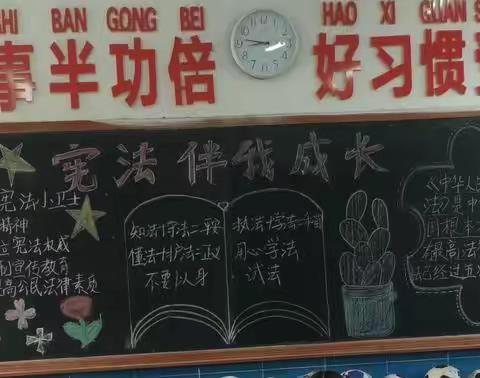 SHI BAN GONG BEI
事半功倍
HAO XI GUAN
好习惯
宪法伴我成长
宪法小卫士
精神
宪法权威
宣传教育
高公民法律素质
知法守法
懂法
不要以身
执法学法
用心学法
试法
《中华人
法》是中
国根本
最高法
已经过五